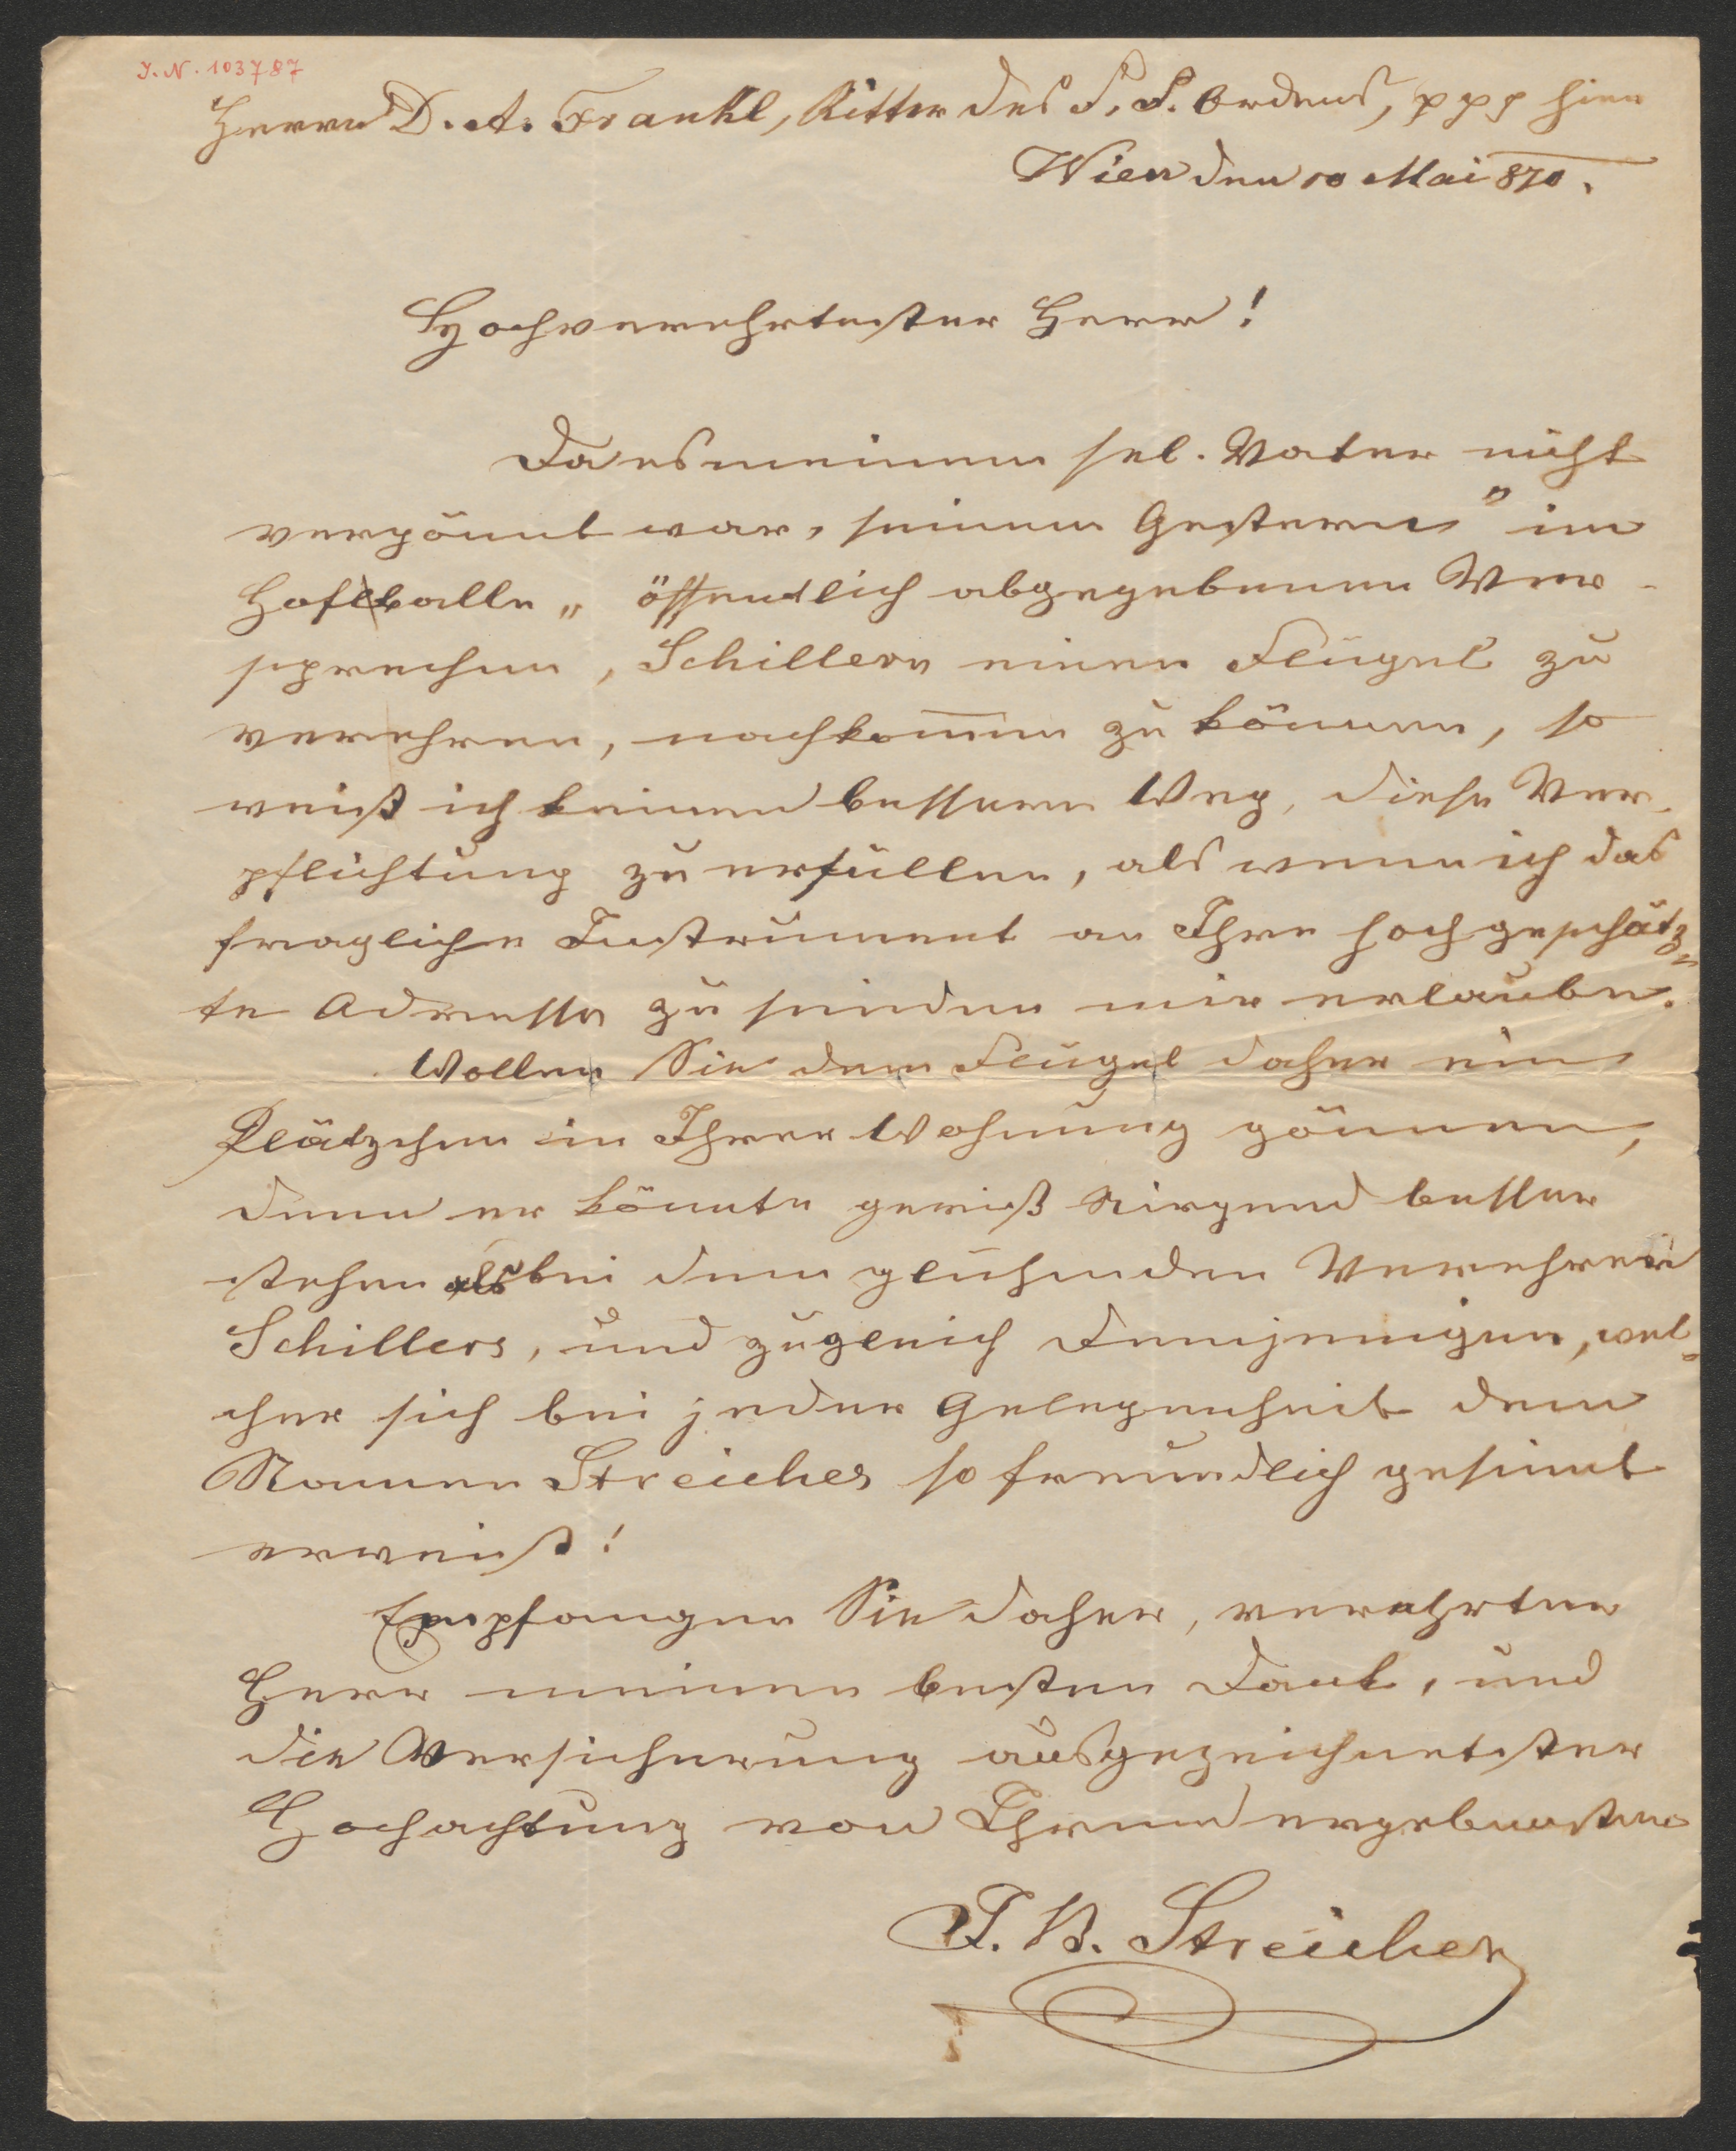 I. N. 103787
Herrn D. A. Frankl, Ritter des F. J. Ordens, ppp hier
Wien den 10 Mai 870.
Hochverehrtester Herr!
Da es meinem sel. Vater nicht
vergönnt war, seinem Gestern " im
Hofballe " öffentlich abgegebenen Ver-
sprechen, Schillern einen Flügel zu
verehren, nachkom̅en zu können, so
weiß ich keinen bessern Weg, diese Ver-
pflichtung zu erfüllen, als wenn ich das
fragliche Instrument an Ihre hochgeschätz-
te Adresse zu senden mir erlaube.
Wollen Sie dem Flügel daher ein
Plätzchen in Ihrer Wohnung gönnen,
denn er könnte gewiß nirgend besser
stehen als bei dem glühenden Verehrer
Schillers, und zugleich demjenigen, wel-
cher sich bei jeder Gelegenheit dem
Namen Streicher so freundlich gesinnt
erweist!
Empfangen Sie daher, verehrter
Herr meinen besten Dank, und
die Versicherung ausgezeichnetster
Hochachtung von Ihrem ergebensten
J. B. Streicher